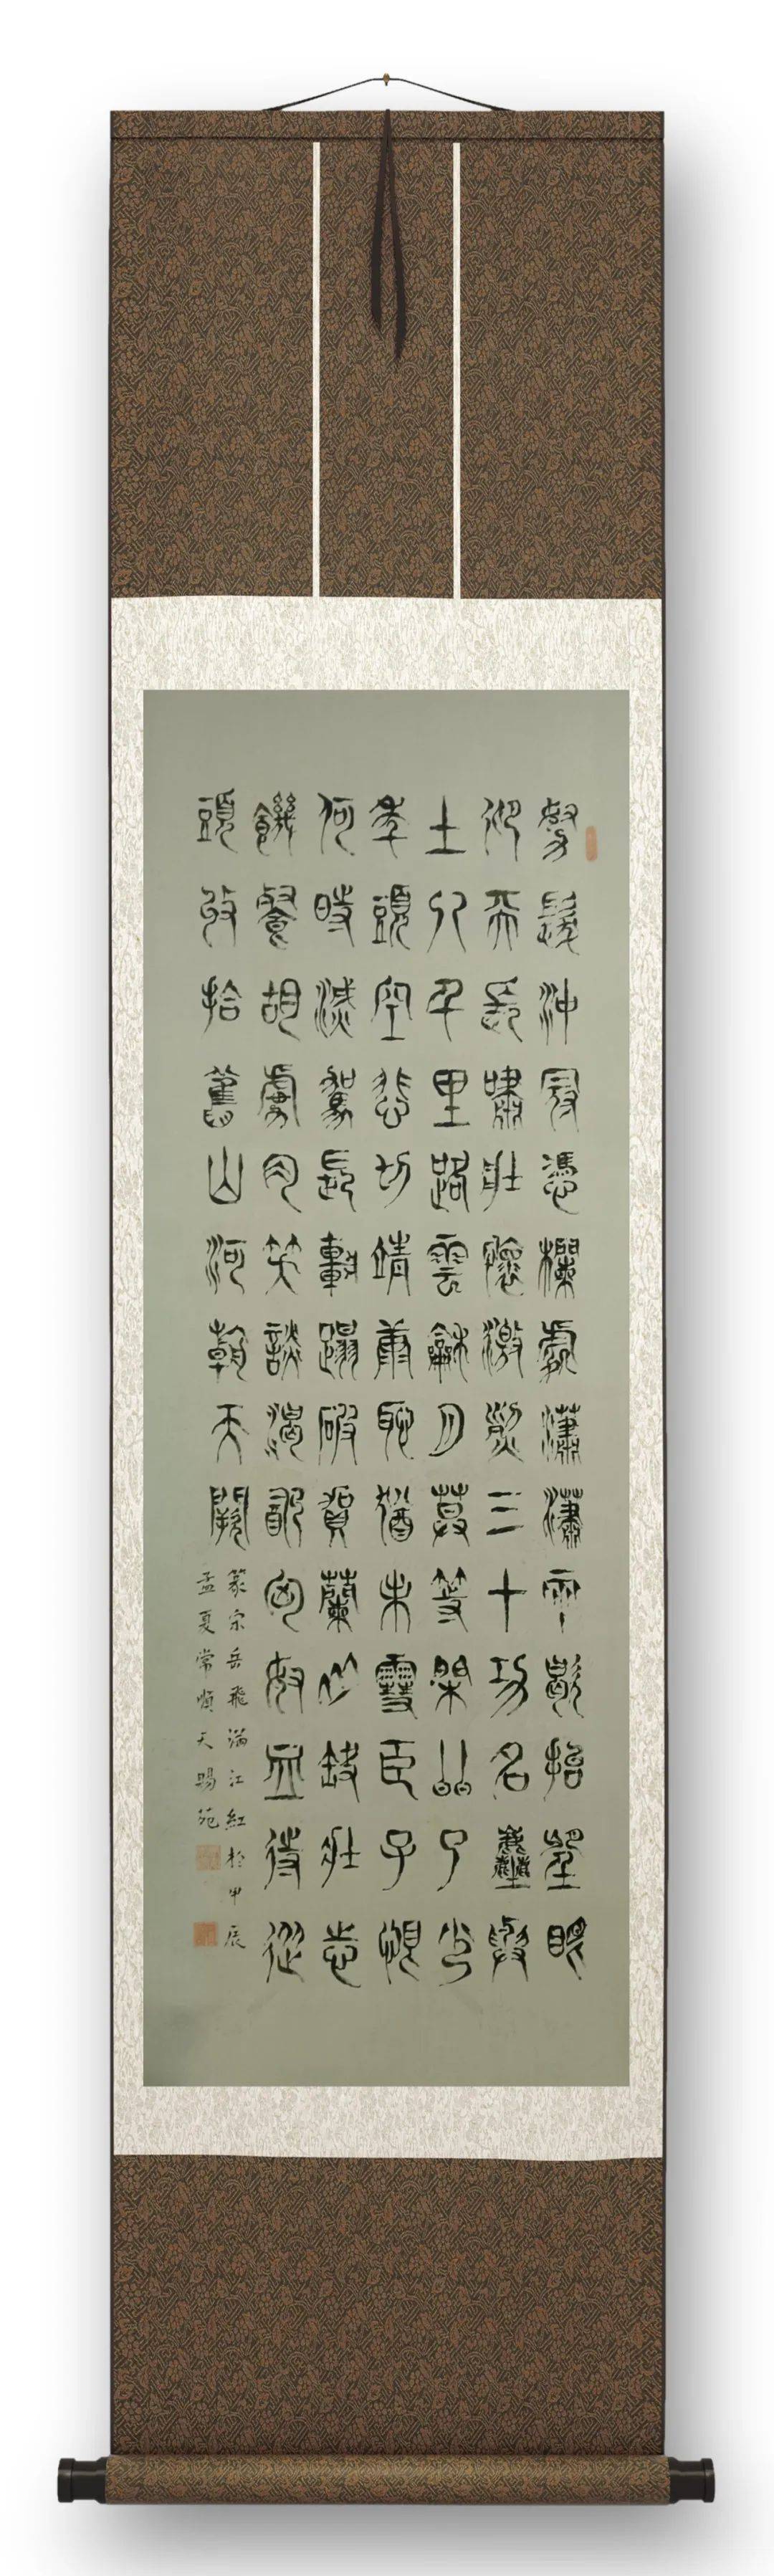 怒髮沖冠憑欄處瀟瀟雨歇抬望眼
仰天長嘯壯懷激烈三十功名塵與
土八千里路雲龢月莫等閑白了少
年頭空悲切靖康恥猶未雪臣子恨
何時滅駕長車蹋破賀蘭山缺壯志
饑餐胡虜肉笑談渴飲匈奴血待從
頭收拾舊山河朝天闕
篆宋岳飛滿江紅於甲辰
孟夏常順天賜苑